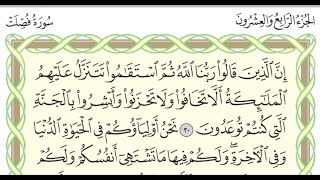 الجزء الرابع والعشرون
سورة فصلت
إِنَّ ٱلَّذِينَ قَالُوا۟ رَبُّنَا ٱللَّهُ ثُمَّ ٱسْتَقَـٰمُوا۟ تَتَنَزَّلُ عَلَيْهِمُ
ٱلْمَلَـٰٓئِكَةُ أَلَّا تَخَافُوا۟ وَلَا تَحْزَنُوا۟ وَأَبْشِرُوا۟ بِٱلْجَنَّةِ
ٱلَّتِى كُنتُمْ تُوعَدُونَ ٣٠ نَحْنُ أَوْلِيَآؤُكُمْ فِى ٱلْحَيَوٰةِ ٱلدُّنْيَا
وَفِى ٱلْـَٔاخِرَةِ وَلَكُمْ فِيهَا مَا تَشْتَهِىٓ أَنفُسُكُمْ وَلَكُمْ